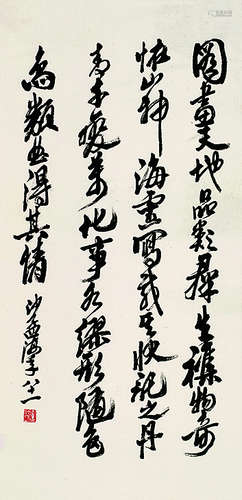 圖畫天地品類羣生襍物奇
怪山神海靈寫載其狀託之丹
青千變萬化事各繆形隨色
象類曲得其情 沙孟海